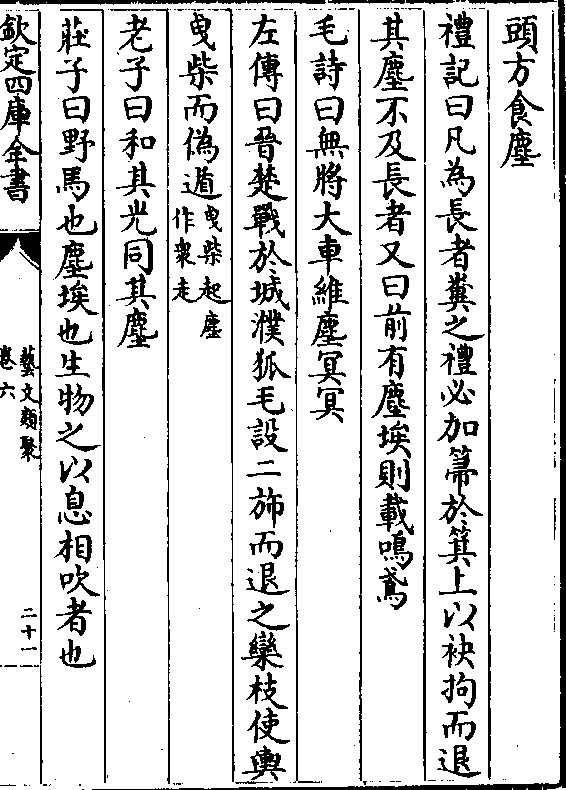 頭方食塵
禮記曰凡為長者糞之禮必加箒於箕上以袂拘而退
其塵不及長者又曰前有塵埃則載鳴鳶
毛詩曰無將大車維塵冥冥
左傳曰晉楚戰於城濮狐毛設二斾而退之欒枝使輿
曳柴而偽遁曳柴起塵
作衆走
老子曰和其光同其塵
莊子曰野馬也塵埃也生物之以息相吹者也
欽定四庫全書
藝文類聚
卷六
二十一